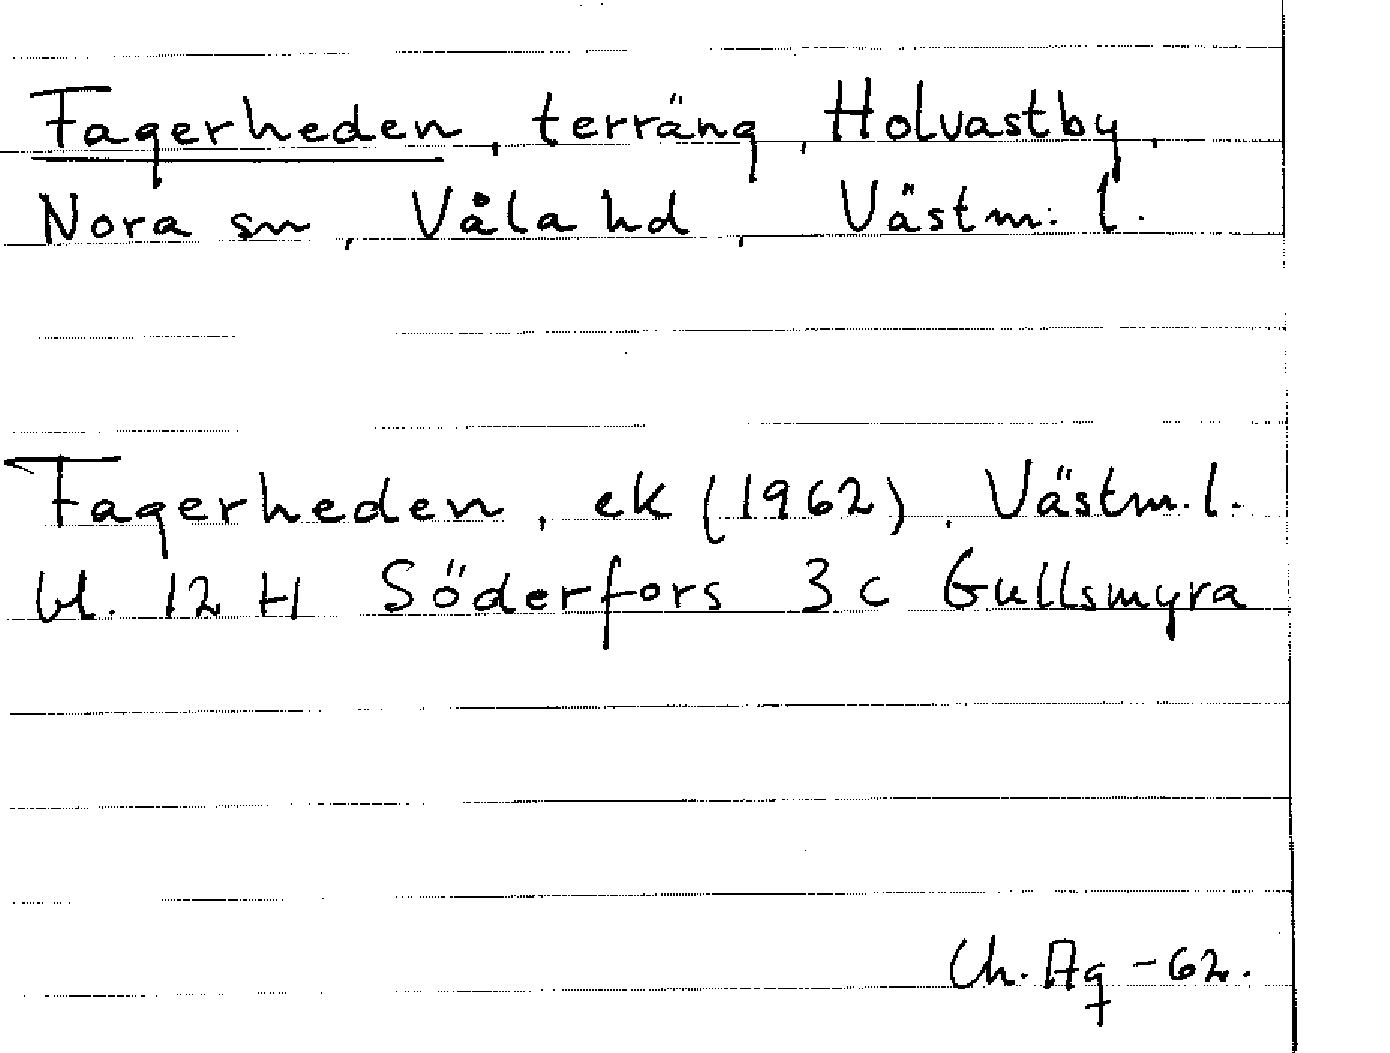 Fagerheden, terräng, Holvastby,
Nora sn, Våla hd, Västm. l.
Fagerheden, ek (1962), Västm. l.
bl. 12 H Söderfors 3 c Gullsmyra
Ch. Ag -62.